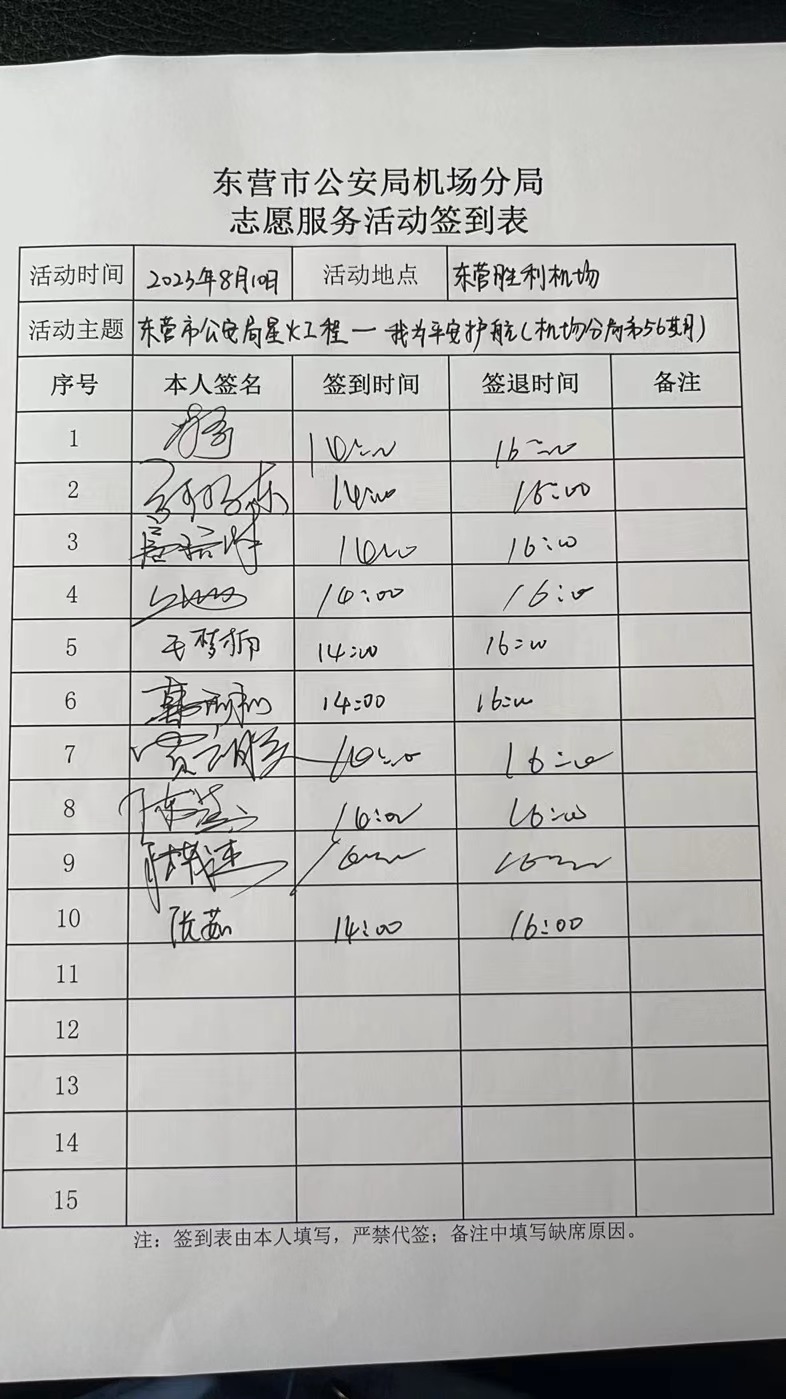 东营市公安局机场分局
志愿服务活动签到表
活动时间 2023年8月10日 活动地点 东营胜利机场
活动主题 东营市公安局星火工程一我为平安护航(机场分局第56期)
序号 本人签名 签到时间 签退时间 备注
1 14:00 16:00
2 14:00 16:00
3 14:00 16:00
4 14:00 16:00
5 14:00 16:00
6 14:00 16:00
7 14:00 16:00
8 16:00
9
10 张茹 14:00 16:00
11
12
13
14
15
注：签到表由本人填写，严禁代签；备注中填写缺席原因。